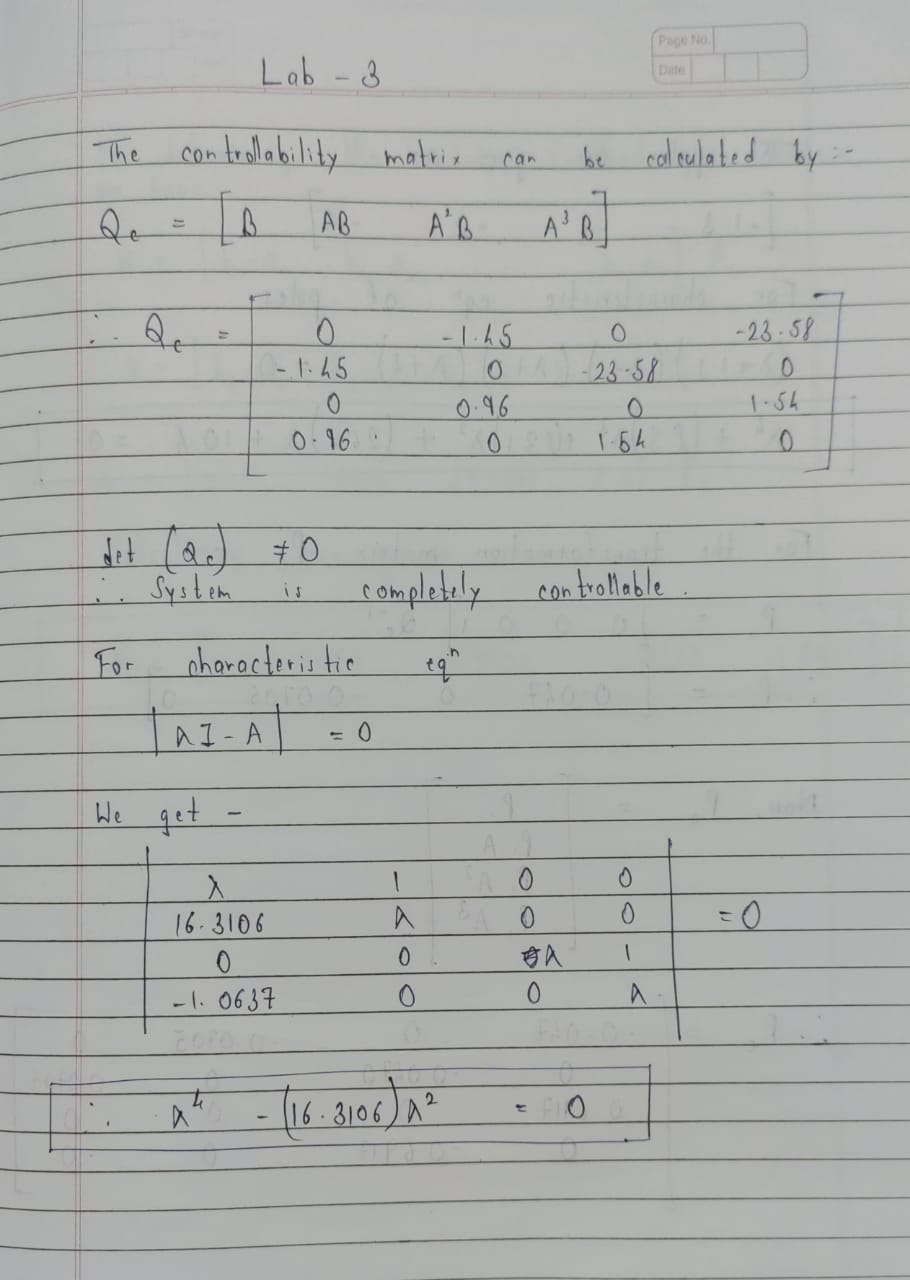 Page No.
Date
Lab - 3
The controllability matrix can be calculated by :-
Qc = [B AB A²B A³B]
∴ Qc = [0 -1.45 0 -23.58
-1.45 0 -23.58 0
0 0.96 0 1.54
0.96 0 1.54 0]
det (Qc) ≠ 0
∴ System is completely controllable.
For characteristic eqⁿ
|λI - A| = 0
We get -
|λ 1 0 0|
|16.3106 λ 0 0| = 0
|0 0 λ 1|
|-1.0637 0 0 λ|
∴ λ⁴ - (16.3106)λ² = 0